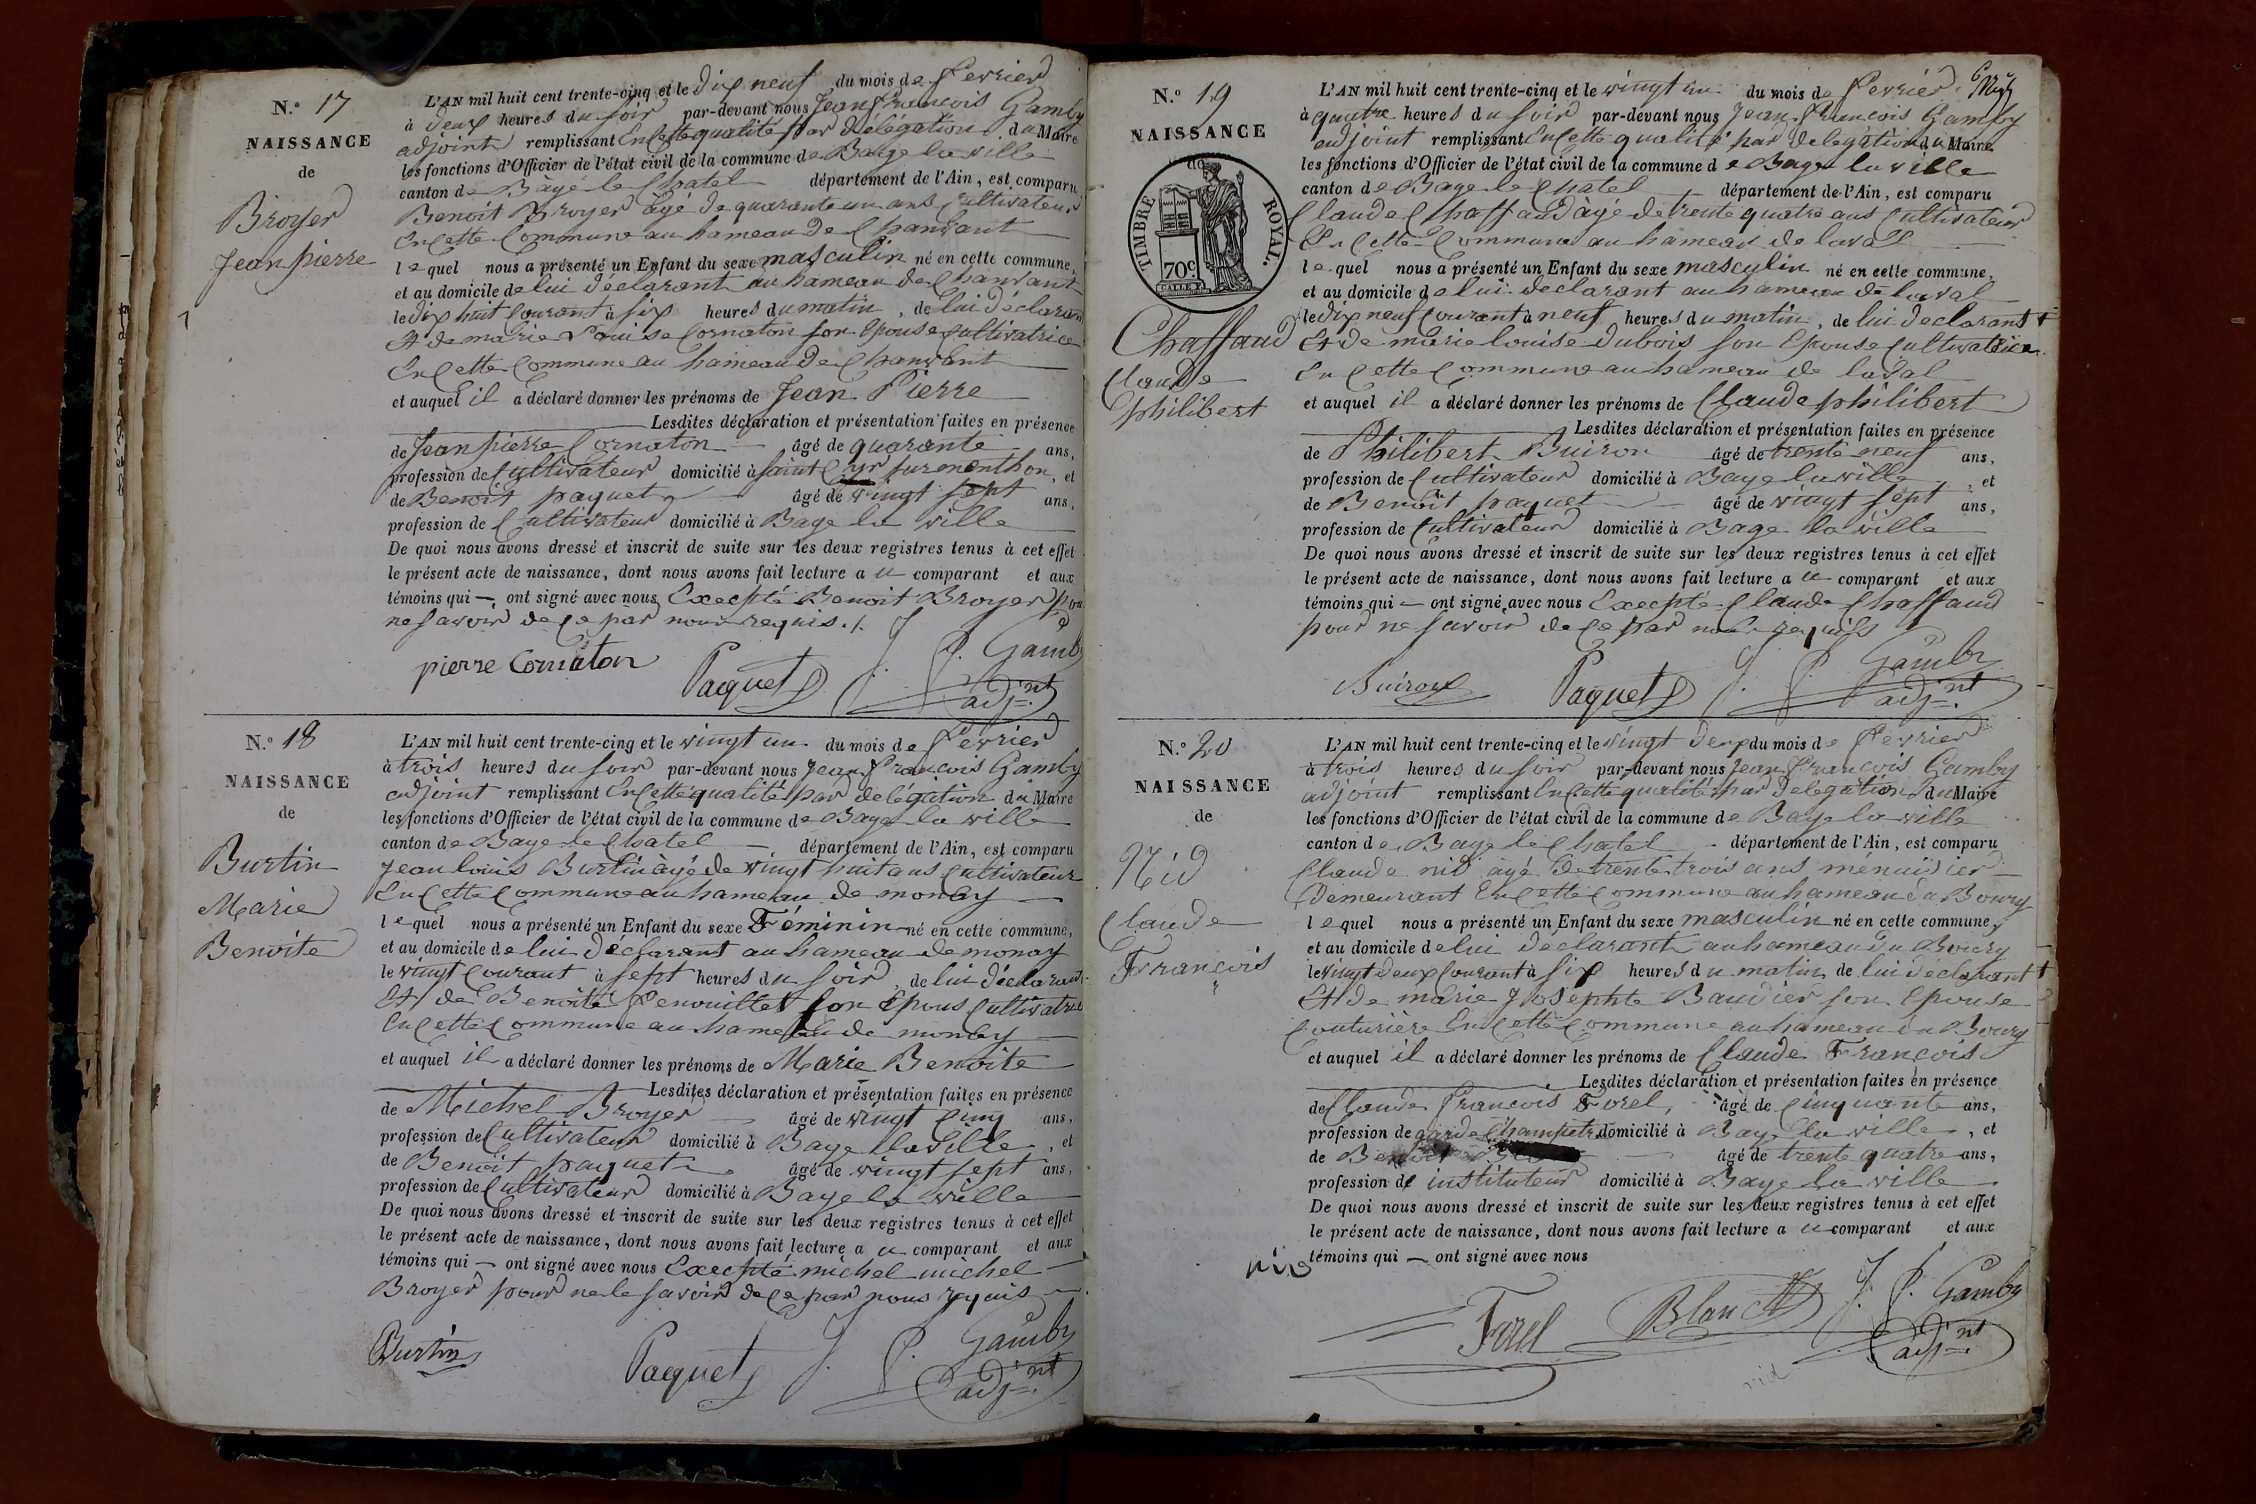 N.o 17
NAISSANCE
de
Broyer
Jean pierre
L'AN mil huit cent trente-cinq et le dix neuf du mois de fevrier
à deux heures du soir par-devant nous Jean françois Gamby
adjoint remplissant en cette qualité par délégation du Maire
les fonctions d'Officier de l'état civil de la commune de Bage la ville
canton de Bage le Chatel département de l'Ain, est comparu
Benoit Broyer agé de quarante un ans Cultivateur
En cette Commune au hameau de Chanvant
lequel nous a présenté un Enfant du sexe masculin né en cette commune,
et au domicile de lui declarant au hameau de Chanvant
le dix huit Courant à six heures du matin, de lui déclarant
Et de marie Louise Cornaton son Epouse Cultivatrice
En Cette Commune au hameau de Chanvant
et auquel il a déclaré donner les prénoms de Jean Pierre
Lesdites déclaration et présentation faites en présence
de Jean pierre Cornaton âgé de quarante ans,
profession de Cultivateur domicilié à saint Cyr sur menthon, et
de Benoit paquet âgé de vingt sept ans,
profession de Cultivateur domicilié à Bage la ville
De quoi nous avons dressé et inscrit de suite sur les deux registres tenus à cet effet
le présent acte de naissance, dont nous avons fait lecture a u comparant et aux
témoins qui — ont signé avec nous Excepté Benoit Broyer pour
ne savoir de ce par nous requis ./.
pierre Cornaton Paquet J. f. Gamby
adj.nt
N.o 18
NAISSANCE
de
Burtin
Marie
Benoite
L'AN mil huit cent trente-cinq et le vingt un du mois de fevrier
à trois heures du soir par-devant nous Jean françois Gamby
adjoint remplissant En cette qualité par delégation du Maire
les fonctions d'Officier de l'état civil de la commune de Bage la ville
canton de Bage le Chatel département de l'Ain, est comparu
Jean louis Burtin âgé de vingt huit ans Cultivateur
En Cette Commune au hameau de monay
lequel nous a présenté un Enfant du sexe Féminin né en cette commune,
et au domicile de lui déclarant au hameau de monay
le vingt Courant à sept heures du soir, de lui déclarant
Et de Benoite fenouillet son Epous Cultivatrice
En Cette Commune au hameau de monay
et auquel il a déclaré donner les prénoms de Marie Benoite
Lesdites déclaration et présentation faites en présence
de Michel Broyer âgé de vingt Cinq ans,
profession de Cultivateur domicilié à Bage la ville, et
de Benoit paquet âgé de vingt sept ans,
profession de Cultivateur domicilié à Bage la ville
De quoi nous avons dressé et inscrit de suite sur les deux registres tenus à cet effet
le présent acte de naissance, dont nous avons fait lecture a u comparant et aux
témoins qui — ont signé avec nous Excepté michel michel
Broyer pour ne le savoir de ce par nous requis
Burtin Paquet J. f. Gamby
adj.nt
N.o 19
NAISSANCE
de
TIMBRE ROYAL.
70c.
Chaffaud
Claude
philibert
L'AN mil huit cent trente-cinq et le vingt un du mois de fevrier
à quatre heures du soir par-devant nous Jean françois Gamby
adjoint remplissant En cette qualité par delégation du Maire
les fonctions d'Officier de l'état civil de la commune de Bage la ville
canton de Bage le Chatel département de l'Ain, est comparu
Claude Chaffaud âgé de trente quatre ans Cultivateur
En Cette Commune au hameau de laval
lequel nous a présenté un Enfant du sexe masculin né en cette commune,
et au domicile de lui declarant au hameau de laval
le dix neuf Courant à neuf heures du matin, de lui declarant
Et de marie louise dubois son Epouse Cultivatrice
En Cette Commune au hameau de laval
et auquel il a déclaré donner les prénoms de Claude philibert
Lesdites déclaration et présentation faites en présence
de Philibert Buiron âgé de trente neuf ans,
profession de Cultivateur domicilié à Bage la ville, et
de Benoit paquet âgé de vingt sept ans,
profession de Cultivateur domicilié à Bage la ville
De quoi nous avons dressé et inscrit de suite sur les deux registres tenus à cet effet
le présent acte de naissance, dont nous avons fait lecture a u comparant et aux
témoins qui — ont signé avec nous Excepté Claude Chaffaud
pour ne savoir de ce par nous requis
Buiron Paquet J. f. Gamby
adj.nt
N.o 20
NAISSANCE
de
Nid
Claude
François
L'AN mil huit cent trente-cinq et le vingt deux du mois de fevrier
à trois heures du soir par-devant nous Jean françois Gamby
adjoint remplissant En cette qualité par delégation du Maire
les fonctions d'Officier de l'état civil de la commune de Bage la ville
canton de Bage le Chatel département de l'Ain, est comparu
Claude nid âgé de trente trois ans ménuisier
Demeurant En Cette Commune au hameau du Bourg
lequel nous a présenté un Enfant du sexe masculin né en cette commune,
et au domicile de lui declarant au hameau du Bourg
le vingt deux Courant à six heures du matin, de lui déclarant
Et de marie Josephte Baudier son Epouse
Couturière En Cette Commune au hameau du Bourg
et auquel il a déclaré donner les prénoms de Claude François
Lesdites déclaration et présentation faites en présence
de Claude françois Forel, âgé de Cinquante ans,
profession de garde Champetre domicilié à Bage la ville, et
de âgé de trente quatre ans,
profession de instituteur domicilié à Bage la ville
De quoi nous avons dressé et inscrit de suite sur les deux registres tenus à cet effet
le présent acte de naissance, dont nous avons fait lecture a u comparant et aux
témoins qui — ont signé avec nous
nid Forel Blanc J. f. Gamby
adj.nt
nid